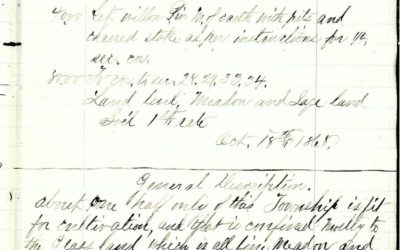 40.00 Set willow Pin M. of earth with pits and
charred stake as per instructions for ¼
sec. cor.
80.00 To cor. to sec. 28.29.33.34.
Land level, Meadow and Sage land
Soil 1st rate
Oct. 18th 1868.
General Description.
about one half only of this Township is fit
for cultivation, and that is confined wholly to
the Grass land which is all fine Meadow and